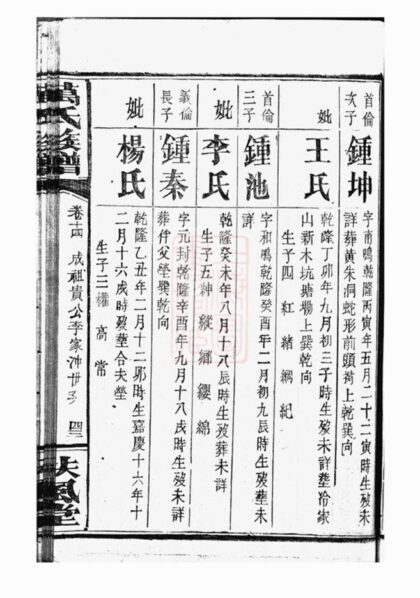 首倫次子
鍾坤
字南鳴乾隆丙寅年五月二十二寅時生歿未
詳葬黃朱洞蛇形前頭荷上乾巽向
妣
王氏
乾隆丁卯年九月初三子時生歿未詳塟冷家
山新木坑塘塝上巽乾向
生子四 紅 緒 綱 紀
首倫三子
鍾池
字和鳴乾隆癸酉年二月初九辰時生歿塟未
詳
妣
李氏
乾隆癸未年八月十八辰時生歿葬未詳
生子五 紳 縱 鄉 纓 綿
義倫長子
鍾秦
字元封乾隆辛酉年九月十八戌時生歿未詳
葬作父塋巽乾向
妣
楊氏
乾隆乙丑年二月十二卯時生嘉慶十六年十
二月十六戌時歿塟合夫塋
生子三 權 高 常
萬氏族譜
卷十四 成祖貴公李家沖世系
扶風堂